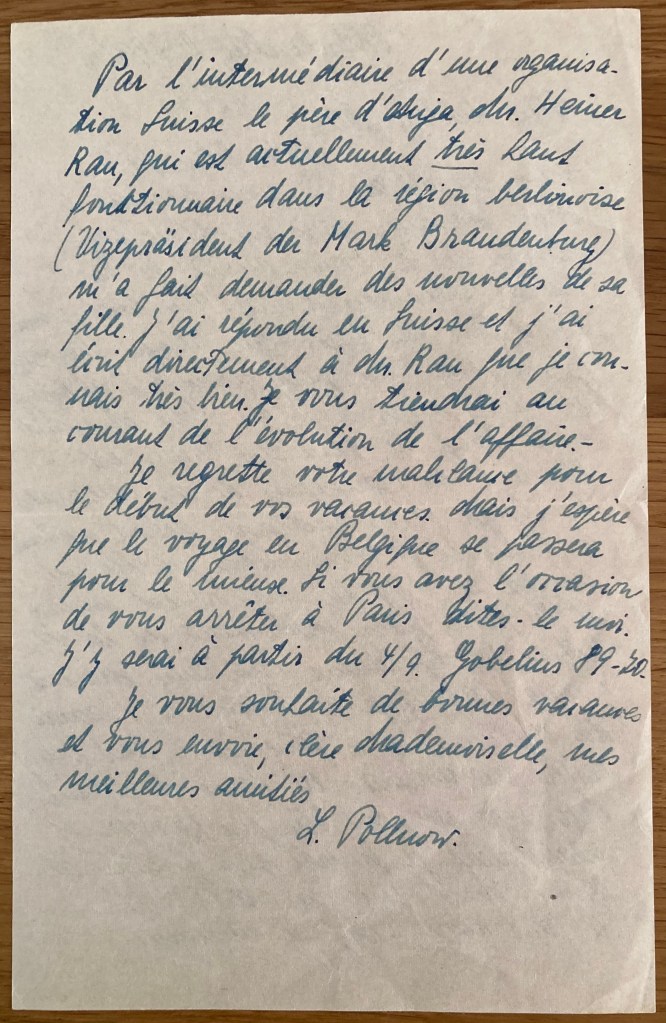 Par l'intermédiaire d'une organisa-
tion Suisse le père d'Anja, Mr. Heiner
Rau, qui est actuellement très haut
fonctionnaire dans la région berlinoise
(Vizepräsident der Mark Brandenburg)
m'a fait demander des nouvelles de sa
fille. J'ai répondu en Suisse et j'ai
écrit directement à Mr. Rau que je con-
nais très bien. Je vous tiendrai au
courant de l'évolution de l'affaire.-
Je regrette votre malchance pour
le début de vos vacances. Mais j'espère
que le voyage en Belgique se passera
pour le mieux. Si vous avez l'occasion
de vous arrêter à Paris dites-le moi.
J'y serai à partir du 4/9. Gobelins 89-20.
Je vous souhaite de bonnes vacances
et vous envoie, chère Mademoiselle, mes
meilleures amitiés
L. Pollnow.